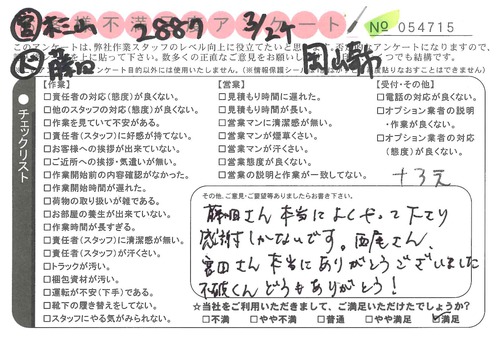 営 杉山 2887 3/24
お客様不満足アンケート
№ 054715
ド 藤田
岡山南
このアンケートは、弊社作業スタッフのレベル向上に役立てたいと思
を上に貼って下さい。数多くの正直なご意見をお願いし
アンケート目的以外には使用いたしません。
チェックリスト
【作業】
□責任者の対応(態度)が良くない。
□他のスタッフの対応(態度)が良くない。
□作業を見ていて不安がある。
□責任者(スタッフ)に好感が持てない。
□お客様への挨拶が出来ていない。
□ご近所への挨拶・気遣いが無い。
□作業開始前の内容確認がなかった。
□作業開始時間が遅れた。
□荷物の取り扱いが雑である。
□お部屋の養生が出来ていない。
□作業時間が長すぎる。
□責任者(スタッフ)に清潔感が無い。
□責任者(スタッフ)が汗くさい。
□トラックが汚い。
□梱包資材が汚い。
□運転が不安(下手)である。
□靴下の履き替えをしてない。
□スタッフにやる気がみられない。
【営業】
□見積もり時間に遅れた。
□見積もり時間が長い。
□営業マンに清潔感が無い。
□営業マンが煙草くさい。
□営業マンが汗くさい。
□営業態度が良くない。
□営業の説明と作業が一致してない。
【受付・その他】
□電話の対応が良くない。
□オプション業者の説明
・作業が良くない。
□オプション業者の対応
(態度)が良くない。
その他、ご意見・ご要望等ありましたらお書き下さい。
藤田さん本当によくやって下さり
感謝しかないです。西尾さん、
宮田さん本当にありがとうございました
不破くんどうもありがとう!
☆当社をご利用いただきまして、ご満足いただけたでしょうか?
□不満 □やや不満 □普通 □やや満足 ☑満足